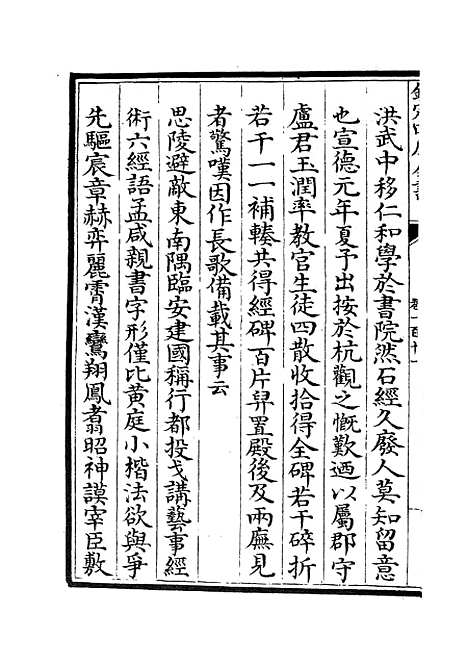 洪武中移仁和學於書院然石經久廢人莫知留意
也宣德元年夏予出按於杭觀之慨歎迺以屬郡守
盧君玉潤率教官生徒四散收拾得全碑若干碎折
若干一一補輳共得經碑百片舁置殿後及兩廡見
者驚嘆因作長歌備載其事云
思陵避敵東南隅臨安建國稱行都投戈講藝事經
術六經語孟咸親書字形僅比黄庭小楷法欲與爭
先驅宸章赫弈麗霄漢鸞翔鳳翥昭神謨宰臣敷